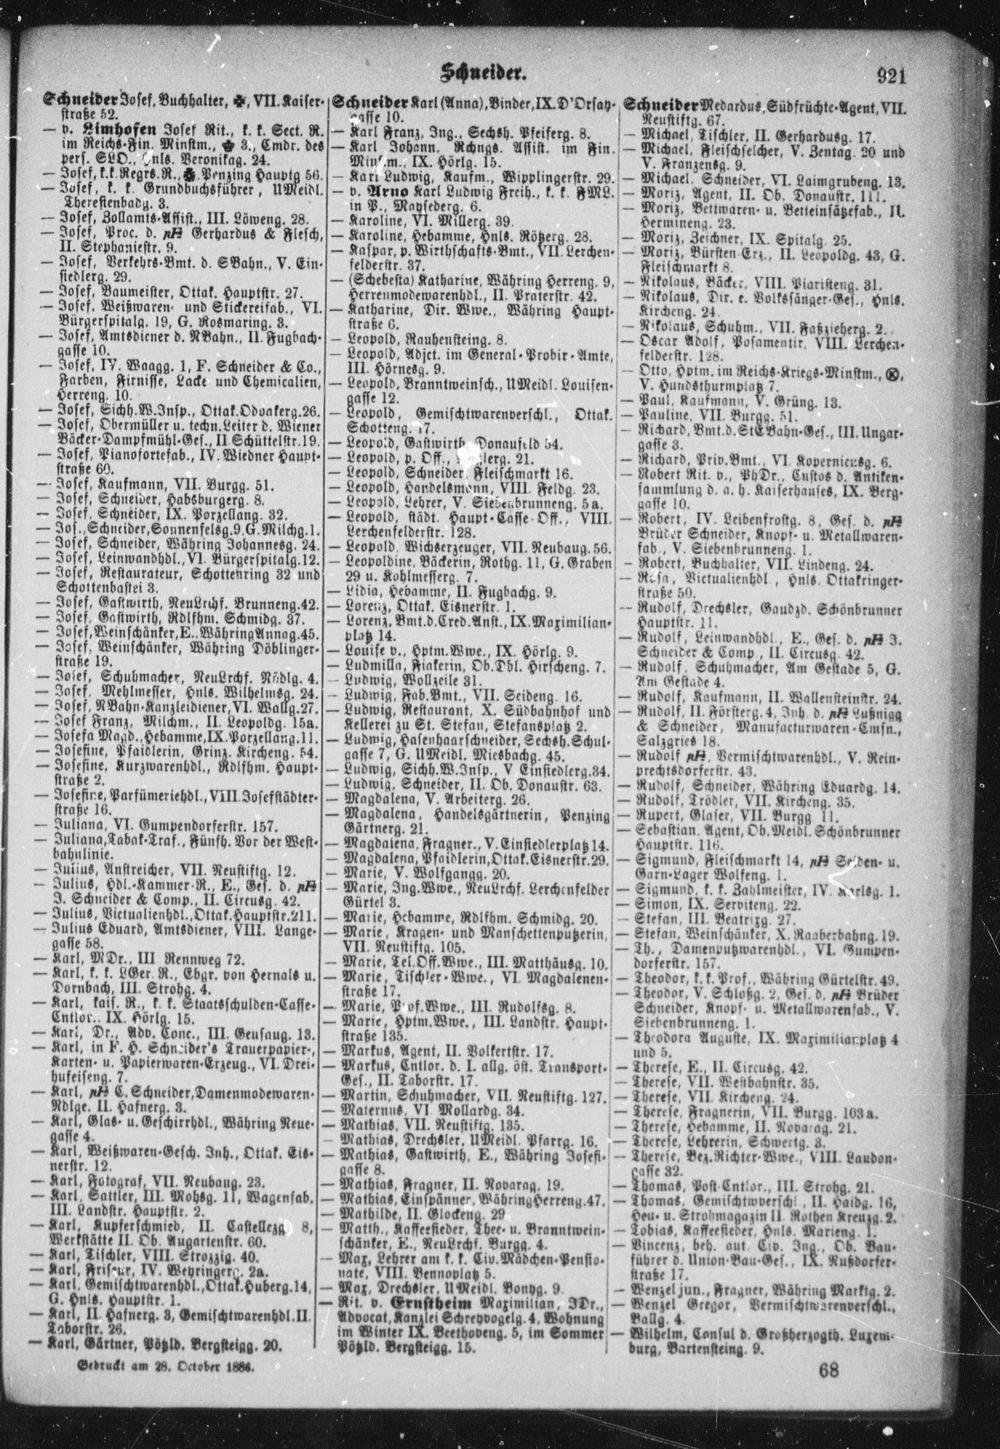 Schneider.
921
Schneider Josef, Buchhalter, ✠, VII. Kaiser-
straße 52.
— v. Limhofen Josef Rit., k. k. Sect. R.
im Reichs-Fin. Minstm., 3., Cmdr. des
pers. SLO., Hnls. Veronikag. 24.
— Josef, k.k. Regrs.R., Penzing Hauptg 56.
— Josef, k. k. Grundbuchsführer, UMeidl.
Theresienbadg. 3.
— Josef, Zollamts-Assist., III. Löweng. 28.
— Josef, Proc. d. pH Gerhardus & Flesch,
II. Stephaniestr. 9.
— Josef, Verkehrs-Bmt. d. SBahn., V. Ein-
siedlerg. 29.
— Josef, Baumeister, Ottak. Hauptstr. 27.
— Josef, Weißwaren- und Stickereifab., VI.
Bürgerspitalg. 19, G. Rosmaring. 3.
— Josef, Amtsdiener d. NBahn., II. Fugbach-
gasse 10.
— Josef, IV. Waagg. 1, F. Schneider & Co.,
Farben, Firnisse, Lacke und Chemicalien,
Herreng. 10.
— Josef, Sichh.W.Insp., Ottak.Odoakerg.26.
— Josef, Obermüller u. techn.Leiter d. Wiener
Bäcker-Dampfmühl-Ges., II Schüttelstr.19.
— Josef, Pianofortefab., IV. Wiedner Haupt-
straße 60.
— Josef, Kaufmann, VII. Burgg. 51.
— Josef, Schneider, Habsburgerg. 8.
— Josef, Schneider, IX. Porzellang. 32.
— Jos., Schneider, Sonnenfelsg.9,G.Milchg.1.
— Josef, Schneider, Währing Johannesg. 24.
— Josef, Leinwandhdl., VI. Bürgerspitalg.12.
— Josef, Restaurateur, Schottenring 32 und
Schottenbastei 3.
— Josef, Gastwirth, NeuLrchf. Brunneng.42.
— Josef, Gastwirth, Rdlfhm. Schmidg. 37.
— Josef, Weinschänker, E., Währing Annag.45.
— Josef, Weinschänker, Währing Döblinger-
straße 19.
— Josef, Schuhmacher, NeuLrchf. Nödlg. 4.
— Josef, Mehlmesser, Hnls. Wilhelmsg. 24.
— Josef, NBahn-Kanzleidiener, VI. Wallg.27.
— Josef Franz, Milchm., II. Leopoldg. 15a.
— Josefa Magd., Hebamme, IX.Porzellang.11.
— Josefine, Pfaidlerin, Grinz. Kircheng. 54.
— Josefine, Kurzwarenhdl., Rdlfhm. Haupt-
straße 2.
— Josefine, Parfümeriehdl., VIII.Josefstädter-
straße 16.
— Juliana, VI. Gumpendorferstr. 157.
— Juliana, Tabak-Traf., Fünfh. Vor der West-
bahnlinie.
— Julius, Anstreicher, VII. Neustiftg. 12.
— Julius, Hdl.-Kammer-R., E., Ges. d. pH
J. Schneider & Comp., II. Circusg. 42.
— Julius, Victualienhdl., Ottak.Hauptstr.211.
— Julius Eduard, Amtsdiener, VIII. Lange-
gasse 58.
— Karl, MDr., III Rennweg 72.
— Karl, k. k. LGer. R., Ebgr. von Hernals u.
Dornbach, III. Strohg. 4.
— Karl, kais. R., k. k. Staatsschulden-Casse-
Cntlor., IX. Hörlg. 15.
— Karl, Dr., Adv. Conc., III. Geusaug. 13.
— Karl, in F. H. Schneider's Trauerpapier-,
Karten- u. Papierwaren-Erzeug., VI. Drei-
hufeiseng. 7.
— Karl, pH C. Schneider, Damenmodewaren-
Ndlge. II. Hafnerg. 3.
— Karl, Glas- u. Geschirrhdl., Währing Neue-
gasse 4.
— Karl, Weißwaren-Gesch. Inh., Ottak. Eis-
nerstr. 12.
— Karl, Fotograf, VII. Neubaug. 23.
— Karl, Sattler, III. Mohsg. 11, Wagenfab.
III. Landstr. Hauptstr. 2.
— Karl, Kupferschmied, II. Castellezg 8,
Werkstätte II. Ob. Augartenstr. 60.
— Karl, Tischler, VIII. Strozzig. 40.
— Karl, Friseur, IV. Weyringerg. 2a.
— Karl, Gemischtwarenhdl., Ottak.Huberg.14,
G. Hnls. Hauptstr. 1.
— Karl, II. Hafnerg. 3, Gemischtwarenhdl. II.
Taborstr. 26.
— Karl, Gärtner, Pötzld. Bergsteigg. 20.
Gedruckt am 28. October 1886.
Schneider Karl (Anna), Binder, IX. D'Orsay-
gasse 10.
— Karl Franz, Ing., Sechsh. Pfeiferg. 8.
— Karl Johann, Rchngs. Assist. im Fin.
Minstm., IX. Hörlg. 15.
— Karl Ludwig, Kaufm., Wipplingerstr. 29.
— v. Arno Karl Ludwig Freih., k. k. FML.
in P., Maysederg. 6.
— Karoline, VI. Millerg. 39.
— Karoline, Hebamme, Hnls. Rötzerg. 28.
— Kaspar, p. Wirthschafts-Bmt., VII. Lerchen-
felderstr. 37.
— (Schebesta) Katharine, Währing Herreng. 9,
Herrenmodewarenhdl., II. Praterstr. 42.
— Katharine, Dir. Wwe., Währing Haupt-
straße 6.
— Leopold, Rauhensteing. 8.
— Leopold, Adjct. im General-Probir-Amte,
III. Hörnesg. 9.
— Leopold, Branntweinsch., UMeidl. Louisen-
gasse 12.
— Leopold, Gemischtwarenverschl., Ottak.
Schotteng. 17.
— Leopold, Gastwirth, Donaufeld 54.
— Leopold, p. Off., lerg. 21.
— Leopold, Schneider, Fleischmarkt 16.
— Leopold, Handelsmann, VIII. Feldg. 23.
— Leopold, Lehrer, V. Siebenbrunneng. 5a.
— Leopold, städt. Haupt-Casse-Off., VIII.
Lerchenfelderstr. 128.
— Leopold, Wichserzeuger, VII. Neubaug. 56.
— Leopoldine, Bäckerin, Rothg. 11, G. Graben
29 u. Kohlmesserg. 7.
— Lidia, Hebamme, II. Fugbachg. 9.
— Lorenz, Ottak. Eisnerstr. 1.
— Lorenz, Bmt.d.Cred.Anst., IX.Maximilian-
platz 14.
— Louise v., Hptm.Wwe., IX. Hörlg. 9.
— Ludmilla, Fiakerin, Ob.Dbl. Hirscheng. 7.
— Ludwig, Wollzeile 31.
— Ludwig, Fab.Bmt., VII. Seideng. 16.
— Ludwig, Restaurant, X. Südbahnhof und
Kellerei zu St. Stefan, Stefansplatz 2.
— Ludwig, Hasenhaarschneider, Sechsh.Schul-
gasse 7, G. UMeidl. Miesbachg. 45.
— Ludwig, Sichh.W.Insp., V Einsiedlerg.34.
— Ludwig, Schneider, II. Ob. Donaustr. 63.
— Magdalena, V. Arbeiterg. 26.
— Magdalena, Handelsgärtnerin, Penzing
Gärtnerg. 21.
— Magdalena, Fragner., V. Einsiedlerplatz 14.
— Magdalena, Pfaidlerin, Ottak. Eisnerstr.29.
— Marie, V. Wolfgangg. 20.
— Marie, Ing.Wwe., NeuLrchf. Lerchenfelder
Gürtel 3.
— Marie, Hebamme, Rdlfhm. Schmidg. 20.
— Marie, Kragen- und Manschettenputzerin,
VII. Neustiftg. 105.
— Marie, Tel.Off.Wwe., III. Matthäusg. 10.
— Marie, Tischler-Wwe., VI. Magdalenen-
straße 17.
— Marie, Prof.Wwe., III. Rudolfsg. 8.
— Marie, Hptm.Wwe., III. Landstr. Haupt-
straße 135.
— Markus, Agent, II. Volkertstr. 17.
— Markus, Cntlor. d. I. allg. öst. Transport-
Ges., II. Taborstr. 17.
— Martin, Schuhmacher, VII. Neustiftg. 127.
— Maternus, VI. Mollardg. 34.
— Mathias, VII. Neustiftg. 135.
— Mathias, Drechsler, UMeidl. Pfarrg. 16.
— Mathias, Gastwirth, E., Währing Josefi-
gasse 8.
— Mathias, Fragner, II. Novarag. 19.
— Mathias, Einspänner, Währing Herreng.47.
— Mathilde, II. Glockeng. 29
— Matth., Kaffeesieder, Thee- u. Branntwein-
schänker, E., NeuLrchf. Burgg. 4.
— Max, Lehrer am k. k. Civ. Mädchen-Pensio-
nate, VIII. Bennoplatz 5.
— Max, Drechsler, UMeidl. Bonyg. 9.
— Rit. v. Ernstheim Maximilian, JDr.,
Advocat, Kanzlei Schreyvogelg. 4, Wohnung
im Winter IX. Beethoveng. 5, im Sommer
Pötzld. Bergsteigg. 15.
Schneider Medardus, Südfrüchte-Agent, VII.
Neustiftg. 67.
— Michael, Tischler, II. Gerhardusg. 17.
— Michael, Fleischselcher, V. Zentag. 20 und
V. Franzensg. 9.
— Michael, Schneider, VI. Laimgrubeng. 13.
— Moriz, Agent, II. Ob. Donaustr. 111.
— Moriz, Bettwaren- u. Betteinsätzefab., II.
Hermineng. 23.
— Moriz, Zeichner, IX. Spitalg. 25.
— Moriz, Bürsten-Erz., II. Leopoldg. 43, G.
Fleischmarkt 8.
— Nikolaus, Bäcker, VIII. Piaristeng. 31.
— Nikolaus, Dir. e. Volkssänger-Ges., Hnls.
Kircheng. 24.
— Nikolaus, Schuhm., VII. Faßzieherg. 2.
— Oscar Adolf, Posamentir, VIII. Lerchen-
felderstr. 128.
— Otto, Hptm. im Reichs-Kriegs-Minstm., Ⓚ,
V. Hundsthurmplatz 7.
— Paul, Kaufmann, V. Grüng. 13.
— Pauline, VII. Burgg. 51.
— Richard, Bmt.d.StEBahn-Ges., III. Ungar-
gasse 3.
— Richard, Priv.Bmt., VI. Kopernicusg. 6.
— Robert Rit. v., PhDr., Custos d. Antiken-
sammlung d. a. h. Kaiserhauses, IX. Berg-
gasse 10.
— Robert, IV. Leibenfrostg. 8, Ges. d. pH
Brüder Schneider, Knopf- u. Metallwaren-
fab., V. Siebenbrunneng. 1.
— Robert, Buchhalter, VII. Lindeng. 24.
— Rosa, Victualienhdl., Hnls. Ottakringer-
straße 50.
— Rudolf, Drechsler, Gaudzd. Schönbrunner
Hauptstr. 11.
— Rudolf, Leinwandhdl., E., Ges. d. pH J.
Schneider & Comp., II. Circusg. 42.
— Rudolf, Schuhmacher, Am Gestade 5, G.
Am Gestade 4.
— Rudolf, Kaufmann, II. Wallensteinstr. 24.
— Rudolf, II. Försterg. 4, Inh. d. pH Lußnigg
& Schneider, Manufacturwaren-Cmsn.,
Salzgries 18.
— Rudolf pH, Vermischtwarenhdl., V. Rein-
prechtsdorferstr. 43.
— Rudolf, Schneider, Währing Eduardg. 14.
— Rudolf, Trödler, VII. Kircheng. 35.
— Rupert, Glaser, VII. Burgg 11.
— Sebastian, Agent, Ob.Meidl. Schönbrunner
Hauptstr. 116.
— Sigmund, Fleischmarkt 14, pH Seiden- u.
Garn-Lager Wolfeng. 1.
— Sigmund, k. k. Zahlmeister, IV. Karlsg. 1.
— Simon, IX. Serviteng. 22.
— Stefan, III. Beatrixg. 27.
— Stefan, Weinschänker, X. Raaberbahng. 19.
— Th., Damenputzwarenhdl., VI. Gumpen-
dorferstr. 157.
— Theodor, k. k. Prof., Währing Gürtelstr. 49.
— Theodor, V. Schloßg. 2, Ges. d. pH Brüder
Schneider, Knopf- u. Metallwarenfab., V.
Siebenbrunneng. 1.
— Theodora Auguste, IX. Maximilianplatz 4
und 5.
— Therese, E., II. Circusg. 42.
— Therese, VII. Westbahnstr. 35.
— Therese, VII. Kircheng. 24.
— Therese, Fragnerin, VII. Burgg. 103a.
— Therese, Hebamme, II. Novarag. 21.
— Therese, Lehrerin, Schwertg. 3.
— Therese, Bez.Richter-Wwe., VIII. Laudon-
gasse 32.
— Thomas, Post-Cntlor., III. Strohg. 21.
— Thomas, Gemischtwverschl., II. Haidg. 16,
Heu- u. Strohmagazin II. Rothen Kreuzg. 2.
— Tobias, Kaffeesieder, Hnls. Marieng. 1.
— Vincenz, beh. aut. Civ. Ing., Ob. Bau-
führer d. Union-Bau-Ges., IX. Nußdorfer-
straße 17.
— Wenzel jun., Fragner, Währing Marktg. 2.
— Wenzel Gregor, Vermischtwarenverschl.,
Ballg. 4.
— Wilhelm, Consul d. Großherzogth. Luxem-
burg, Bartensteing. 9.
68